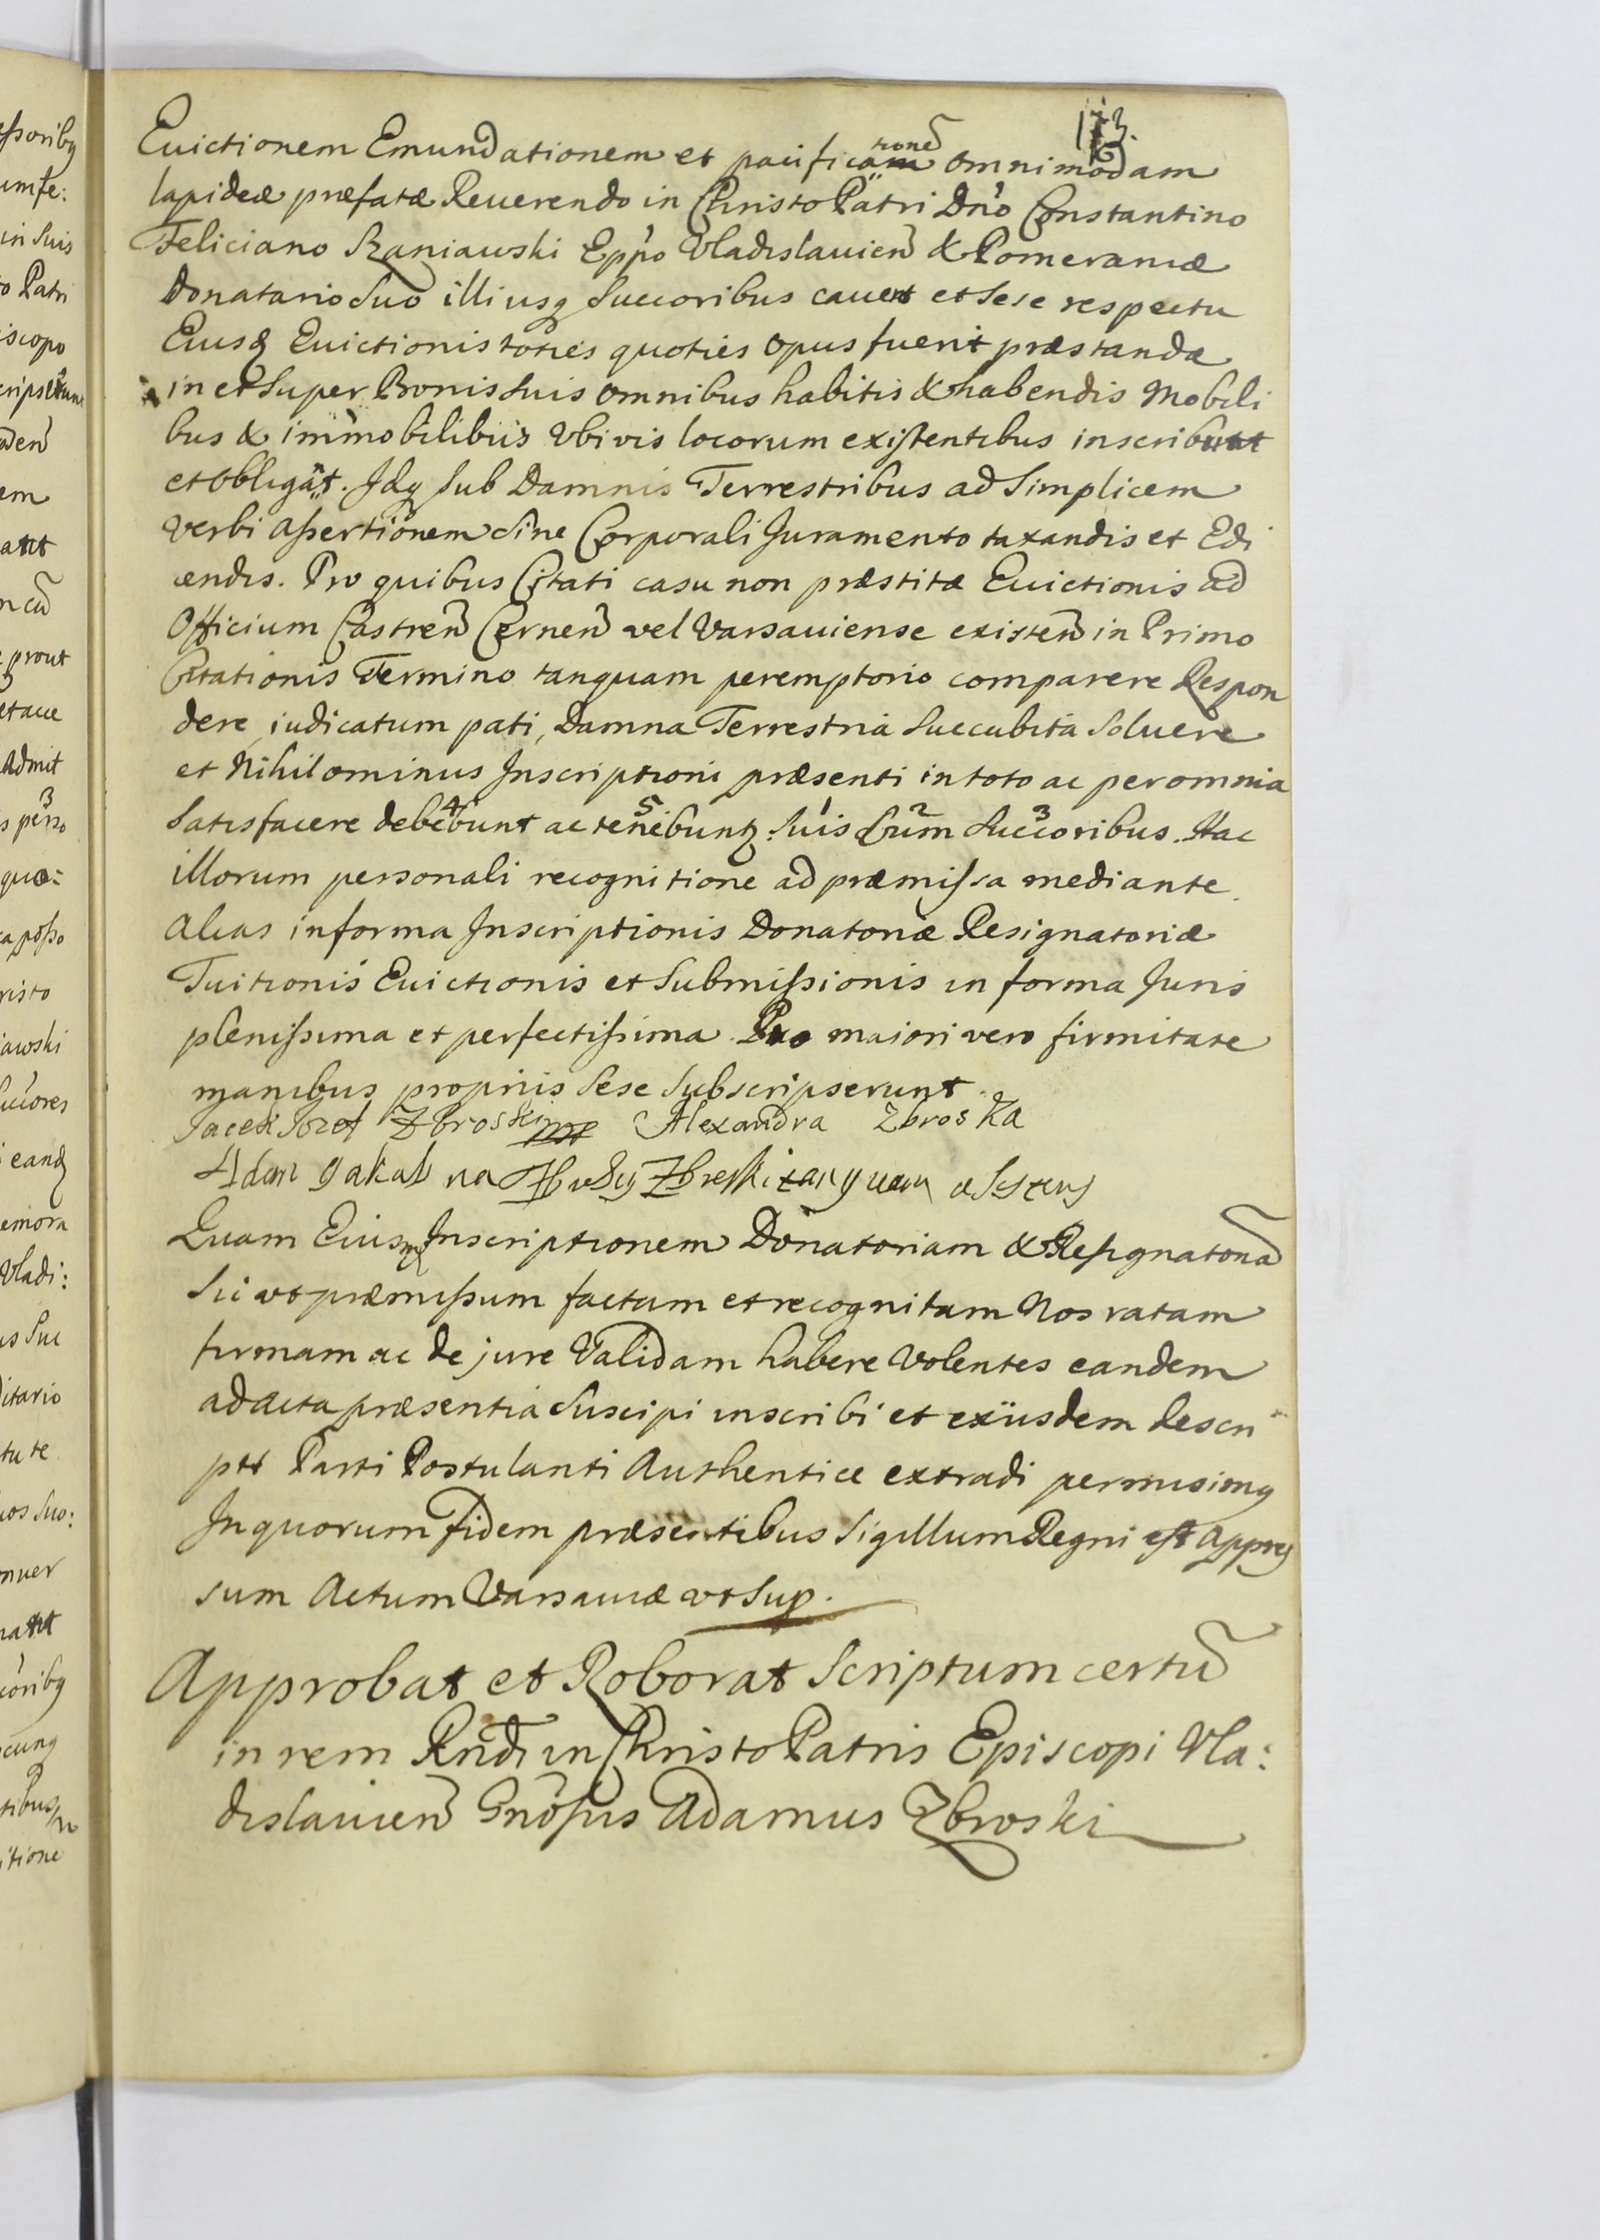 113.
Euictionem Emundationem et pacificationẽ omnimodam
lapideæ præfatæ Reuerendo in Christo Patri Dno Constantino
Feliciano Szaniawski Eppo Vladislauien̄ & Pomeraniæ
Donatario suo illiusq succoribus cauent et sese respectu
Eiusq Euictionis toties quoties opus fuerit præstandæ
in et super Bonis suis omnibus habitis & habendis Mobili
bus & immobilibus Vbivis locorum existentibus inscribunt
et obligãt. Idq sub Damnis Terrestribus ad simplicem
verbi assertionem sine Corporali Juramento taxandis et Edi
cendis. Pro quibus Citati casu non præstitæ Euictionis ad
Officium Castren̄ Cernen̄ vel Varsauiense existen̄ in Primo
Citationis Termino tanquam peremptorio comparere Respon
dere, iudicatum pati, Damna Terrestria succubita soluere
et Nihilominus Inscriptioni præsenti in toto ac per omnia
satisfacere debebunt 4 ac tenebuntz 5 suis 1 cum 2 succoribus 3. Hac
illorum personali recognitione ad præmissa mediante
alias in forma Inscriptionis Donatoriæ Resignatoriæ
Tuitionis Euictionis et submissionis in forma Juris
plenissima et perfectissima. Pro maiori vero firmitate
manibus propriis sese subscripserunt.
Jacek Jozef Zbroski mp Alexandra Zbroska
Adam Zbroski tanquam asistens
Quam Eiusmq Inscriptionem Donatoriam & Resignatoriã
sic vt præmissum factam et recognitam Nos ratam
firmam ac de jure Validam habere Volentes eandem
ad acta præsentia suscipi inscribi et exiusdem descri
pti Parti Postulanti Authentice extradi permisimq
In quorum fidem præsentibus Sigillum Regni est appres
sum Actum Varsauiæ vt sup.
Approbat et Roborat Scriptum certũ
in rem Rndi in Christo Patris Episcopi Vla:
dislauien̄ Gnosus Adamus Zbroski